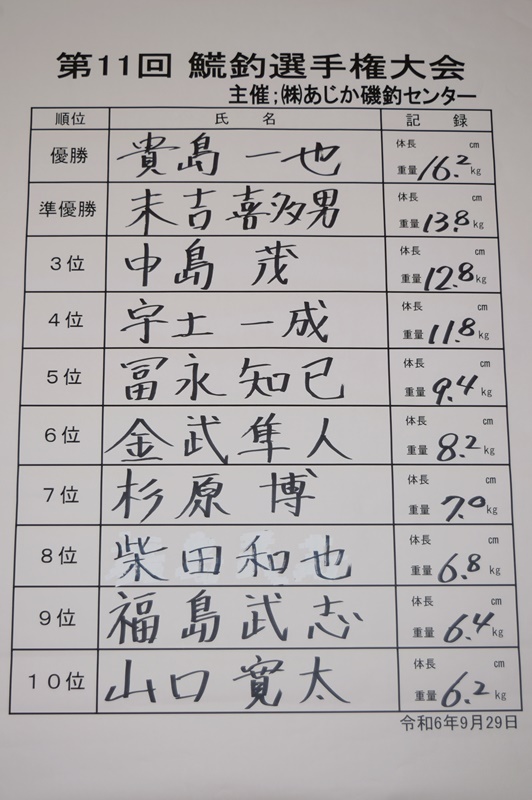 第11回 鯍釣選手権大会
主催;㈱あじか磯釣センター
順位 氏名 記録
優勝 貴島一也 体長 cm 重量 16.2kg
準優勝 末吉喜多男 体長 cm 重量 13.8kg
3位 中島 茂 体長 cm 重量 12.8kg
4位 宇土一成 体長 cm 重量 11.8kg
5位 冨永知己 体長 cm 重量 9.4kg
6位 金武隼人 体長 cm 重量 8.2kg
7位 杉原 博 体長 cm 重量 7.0kg
8位 柴田和也 体長 cm 重量 6.8kg
9位 福島武志 体長 cm 重量 6.4kg
10位 山口寛太 体長 cm 重量 6.2kg
令和6年9月29日